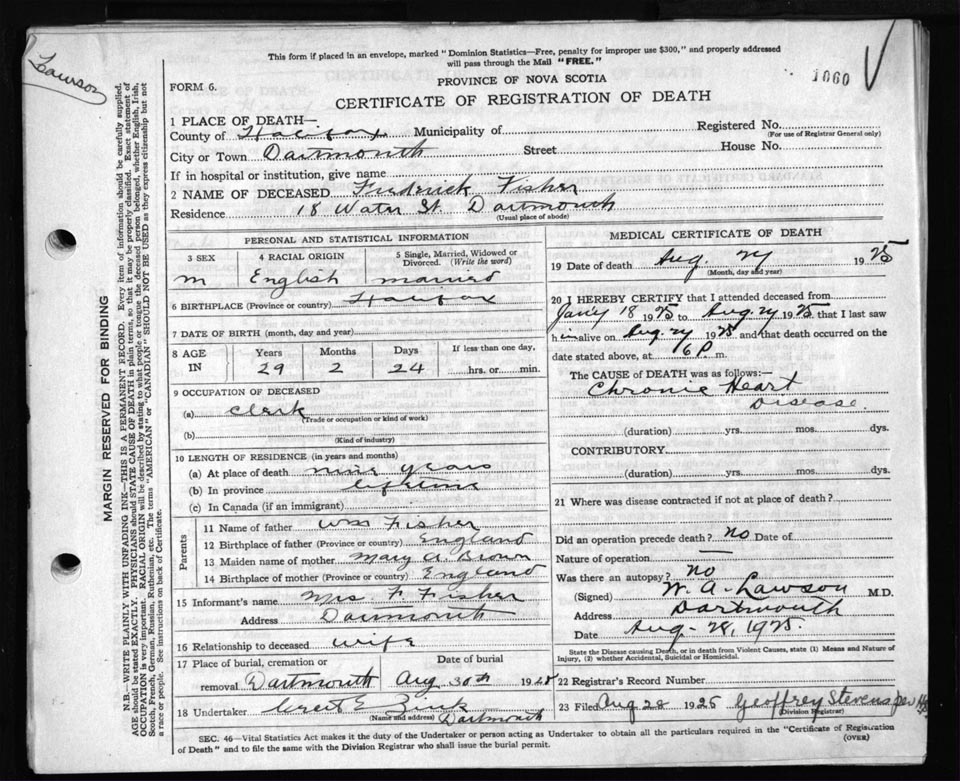 Lawson
This form if placed in an envelope, marked "Dominion Statistics—Free, penalty for improper use $300," and properly addressed
will pass through the Mail "FREE."
1060
FORM 6.
PROVINCE OF NOVA SCOTIA
CERTIFICATE OF REGISTRATION OF DEATH
1 PLACE OF DEATH—
County of Halifax Municipality of Registered No.
(For use of Registrar General only)
City or Town Dartmouth Street House No.
If in hospital or institution, give name
2 NAME OF DECEASED Frederick Fisher
Residence 18 Water St. Dartmouth
(Usual place of abode)
PERSONAL AND STATISTICAL INFORMATION
3 SEX 4 RACIAL ORIGIN 5 Single, Married, Widowed or
Divorced. (Write the word)
m English married
6 BIRTHPLACE (Province or country) Halifax
7 DATE OF BIRTH (month, day and year)
8 AGE IN Years Months Days If less than one day,
29 2 24 hrs. or min.
9 OCCUPATION OF DECEASED
(a) Clerk
(Trade or occupation or kind of work)
(b)
(Kind of industry)
10 LENGTH OF RESIDENCE (in years and months)
(a) At place of death nine years
(b) In province lifetime
(c) In Canada (if an immigrant)
Parents
11 Name of father Wm Fisher
12 Birthplace of father (Province or country) England
13 Maiden name of mother Mary A. Brown
14 Birthplace of mother (Province or country) England
15 Informant's name Mrs. F. Fisher
Address Dartmouth
16 Relationship to deceased wife
17 Place of burial, cremation or Date of burial
removal Dartmouth Aug 30th 1925
18 Undertaker E. Zink
(Name and address) Dartmouth
MEDICAL CERTIFICATE OF DEATH
19 Date of death Aug. 27 1925
(Month, day and year)
20 I HEREBY CERTIFY that I attended deceased from
Jany 18 1925 to Aug 27 1925, that I last saw
him alive on Aug. 27 1925, and that death occurred on the
date stated above, at P m.
The CAUSE OF DEATH was as follows:—
Chronic Heart
Disease.
(duration) yrs. mos. dys.
CONTRIBUTORY.
(duration) yrs. mos. dys.
21 Where was disease contracted if not at place of death?
Did an operation precede death? No Date of
Nature of operation —
Was there an autopsy? No
(Signed) W. A. Lawson M.D.
Address Dartmouth
Date Aug. 28, 1925.
State the Disease causing Death, or in death from Violent Causes, state (1) Means and Nature of
Injury, (2) whether Accidental, Suicidal or Homicidal.
22 Registrar's Record Number
23 Filed Aug 28 1925 Geoffrey Stevens per
(Division Registrar)
SEC. 46—Vital Statistics Act makes it the duty of the Undertaker or person acting as Undertaker to obtain all the particulars required in the "Certificate of Registration
of Death" and to file the same with the Division Registrar who shall issue the burial permit. (OVER)
MARGIN RESERVED FOR BINDING
N.B.—WRITE PLAINLY WITH UNFADING INK—THIS IS A PERMANENT RECORD. Every item of information should be carefully supplied.
AGE should be stated EXACTLY. PHYSICIANS should STATE CAUSE OF DEATH in plain terms, so that it may be properly classified. Exact statement of
OCCUPATION is very important. RACIAL ORIGIN will be described by stating to what people or tongue the deceased person belonged, whether English, Irish,
Scotch, French, German, Russian, Ruthenian, etc. The terms "AMERICAN" or "CANADIAN" SHOULD NOT BE USED as they express citizenship but not
a race or people. See instructions on back of Certificate.